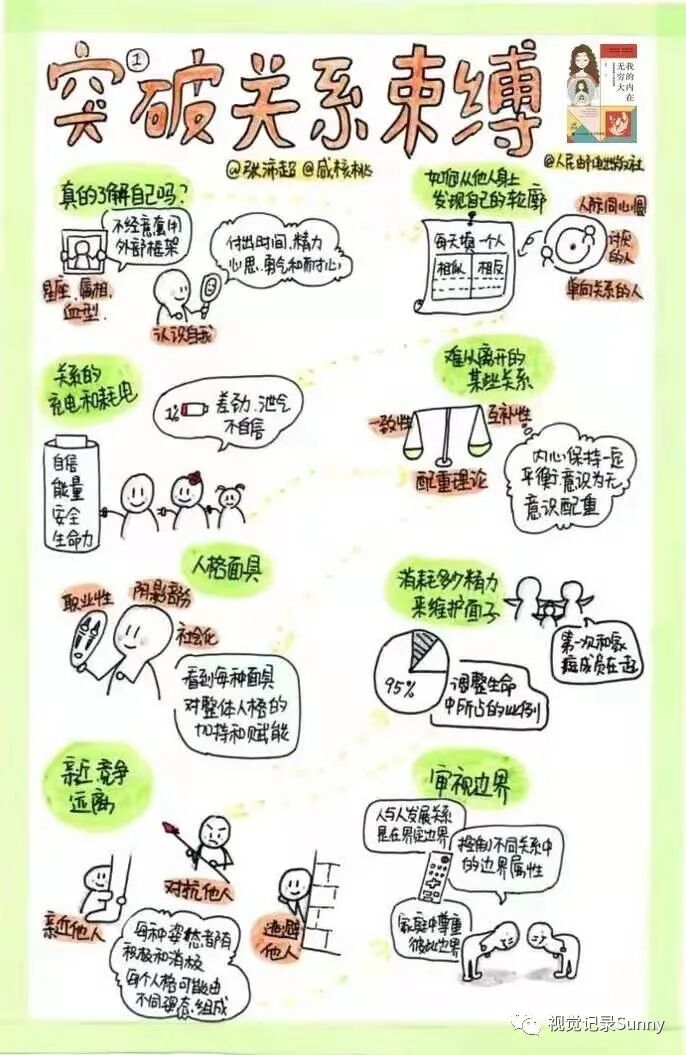 突破关系束缚
1
我的内在
无穷大
@张沛超 @咸核桃
@人民邮电出版社
真的了解自己吗?
不经意套用
外部框架
星座、属相、
血型
付出时间、精力
心思、勇气和耐心
认识自我
如何从他人身上
发现自己的轮廓
每天填一个人
相似 相反
人际同心圆
讨厌
的人
单向关系的人
关系的
充电和耗电
1%
差劲、泄气
不自信
自信
能量
安全
生命力
难以离开的
某些关系
一致性
互补性
配重理论
内心保持一定
平衡,意识为无
意识配重
人格面具
职业性
阴影部分
社会化
看到每种面具
对整体人格的
加持和赋能
消耗多少精力
来维护面子
95%
调整生命
中所占的比例
第一次和家
庭成员在一起
亲近 竞争
远离
对抗他人
亲近他人
逃避
他人
每种姿态都有
积极和消极
每个人格可能由
不同姿态组成
审视边界
人与人发展关系
是在界定边界
控制不同关系中
的边界属性
家庭中尊重
彼此边界
视觉记录Sunny